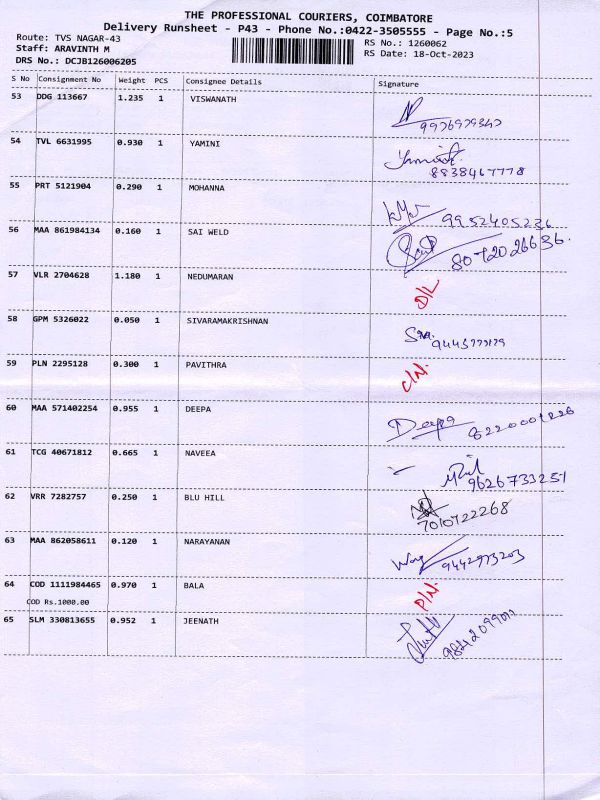 THE PROFESSIONAL COURIERS, COIMBATORE
Delivery Runsheet - P43 - Phone No.:0422-3505555 - Page No.:5
Route: TVS NAGAR-43
RS No.: 1260062
Staff: ARAVINTH M
RS Date: 18-Oct-2023
DRS No.: DCJB126006205
S No Consignment No Weight PCS Consignee Details Signature
53 DDG 113667 1.235 1 VISWANATH
54 TVL 6631995 0.930 1 YAMINI
8838467778
55 PRT 5121904 0.290 1 MOHANNA
9952405236
56 MAA 861984134 0.160 1 SAI WELD
8072026636.
57 VLR 2704628 1.180 1 NEDUMARAN D/L
58 GPM 5326022 0.050 1 SIVARAMAKRISHNAN
59 PLN 2295128 0.300 1 PAVITHRA C/N.
60 MAA 571402254 0.955 1 DEEPA Deepa 8220001226
61 TCG 40671812 0.665 1 NAVEEA
9626733251
62 VRR 7282757 0.250 1 BLU HILL
7010722268
63 MAA 862058611 0.120 1 NARAYANAN
9442973203
64 COD 1111984465 0.970 1 BALA P/N.
COD Rs.1000.00
65 SLM 330813655 0.952 1 JEENATH